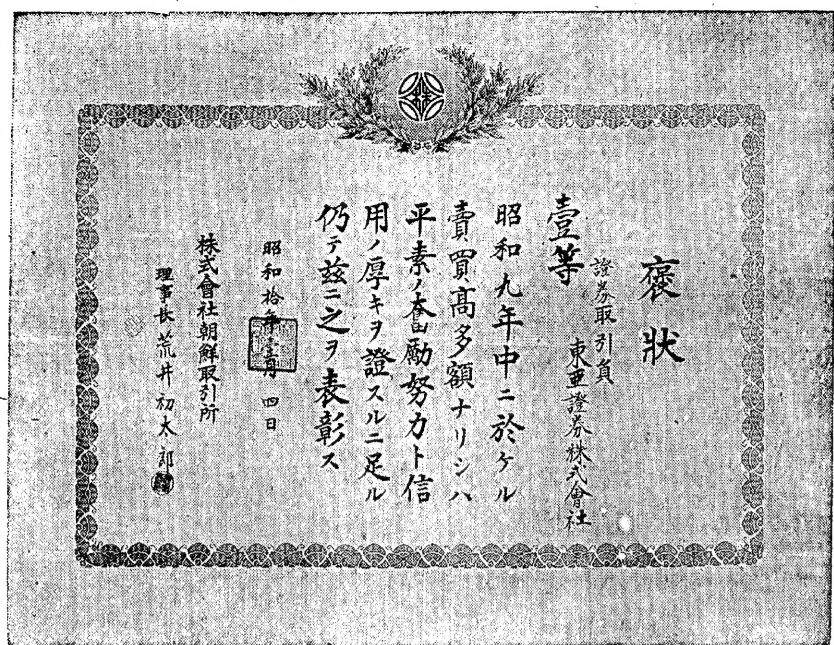 褒狀
證券取引員
東亜證券株式會社
壹等
昭和九年中ニ於ケル
賣買高多額ナリシハ
平素ノ奮勵努力ト信
用ノ厚キヲ證スルニ足ル
仍テ茲ニ之ヲ表彰ス
昭和拾年壹月四日
株式會社朝鮮取引所
理事長 荒井初太郎